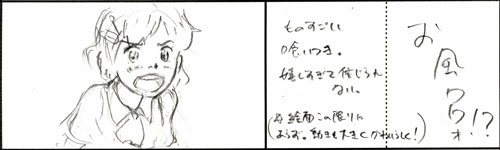 ものすごい
喰いつき。
嬉しすぎて信じらん
ない。
絵面この限りに
あらず。動きも大きくかわいらしく!)
お風呂ォ!?